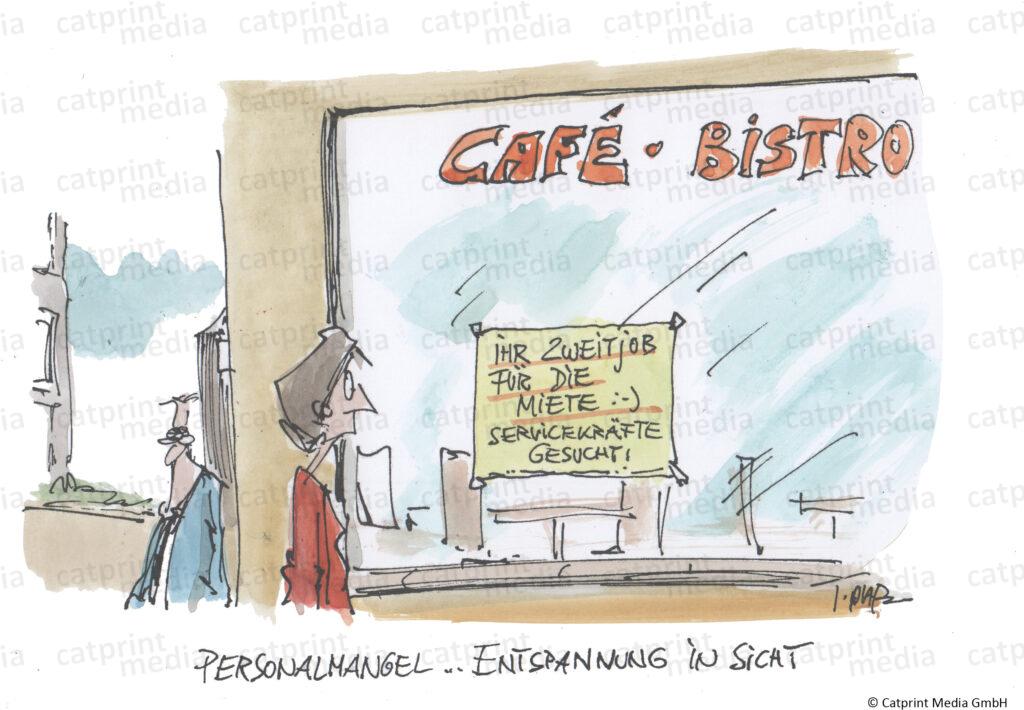 CAFÉ • BISTRO
IHR ZWEITJOB
FÜR DIE
MIETE :-)
SERVICEKRÄFTE
GESUCHT!
PERSONALMANGEL ... ENTSPANNUNG IN SICHT
© Catprint Media GmbH
catprint media